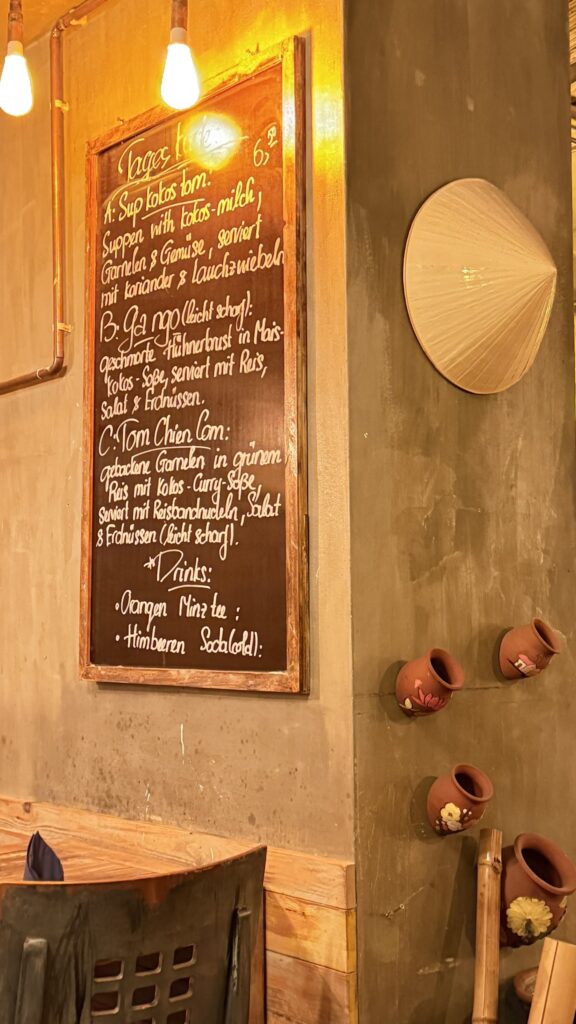 Tages karte
6,50
A: Sup kokos tom.
Suppen with kokos-milch,
Garnelen & Gemüse, serviert
mit koriander & Lauchzwiebeln
B: ga ngo (leicht scharf):
geschmorte Hühnerbrust in Mais-
kokos-Soße, serviert mit Reis,
Salat & Erdnüssen.
C: Tom Chien Com:
gebackene Garnelen in grünem
Reis mit Kokos-Curry-Soße,
serviert mit Reisbandnudeln, Salat
& Erdnüssen (leicht scharf).
*Drinks:
• Orangen Minz tee :
• Himbeeren Soda (cold):